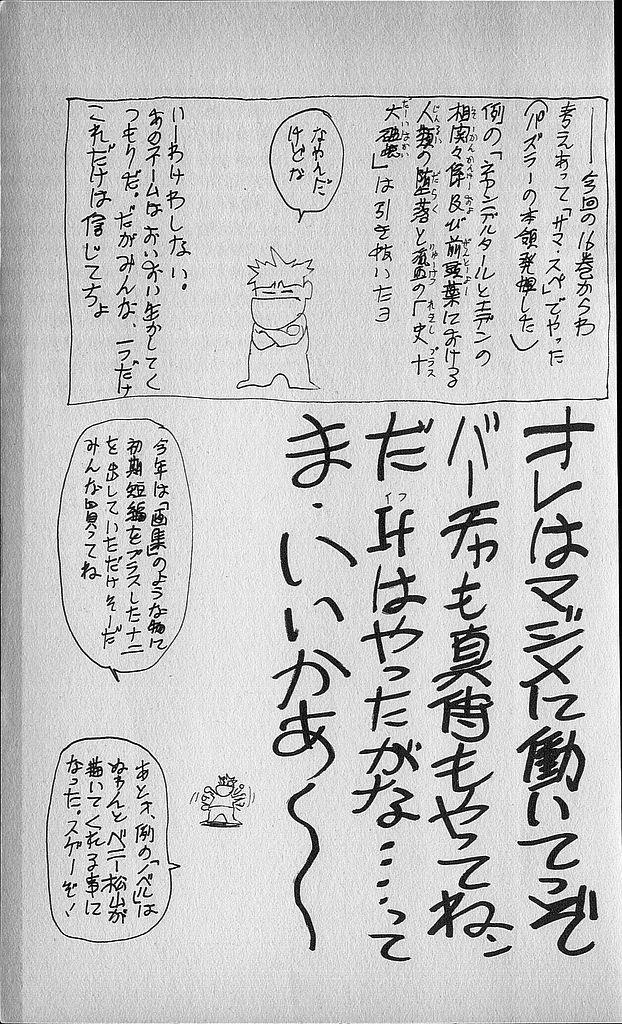 ――今回の16巻からわ
考えあって「サマ・スペ」でやった
(パズラーの本領発揮した)
例の「ネヤンデルタールとエデンの
相関々係及び前頭葉における
人類の堕落と
大破壊」は引き抜いたヨ
なやんだ
けどな
いーわけわしない。
あのネームはおいおい生かしてく
つもりだ。だがみんな、一つだけ
これだけは信じてちょ
オレはマジメに働いてっぞ
バーチャも真侍もやってねン
だ イフ
はやったがな……って
ま、いいかあ～～
今年は「画集」のような物に
初期短編をプラスしたナニ
を出していただけそーだ
みんな買ってね
あとオ、例の「ノベル」は
なんとベニー松山が
描いてくれる事に
なった。スゲーぞ!